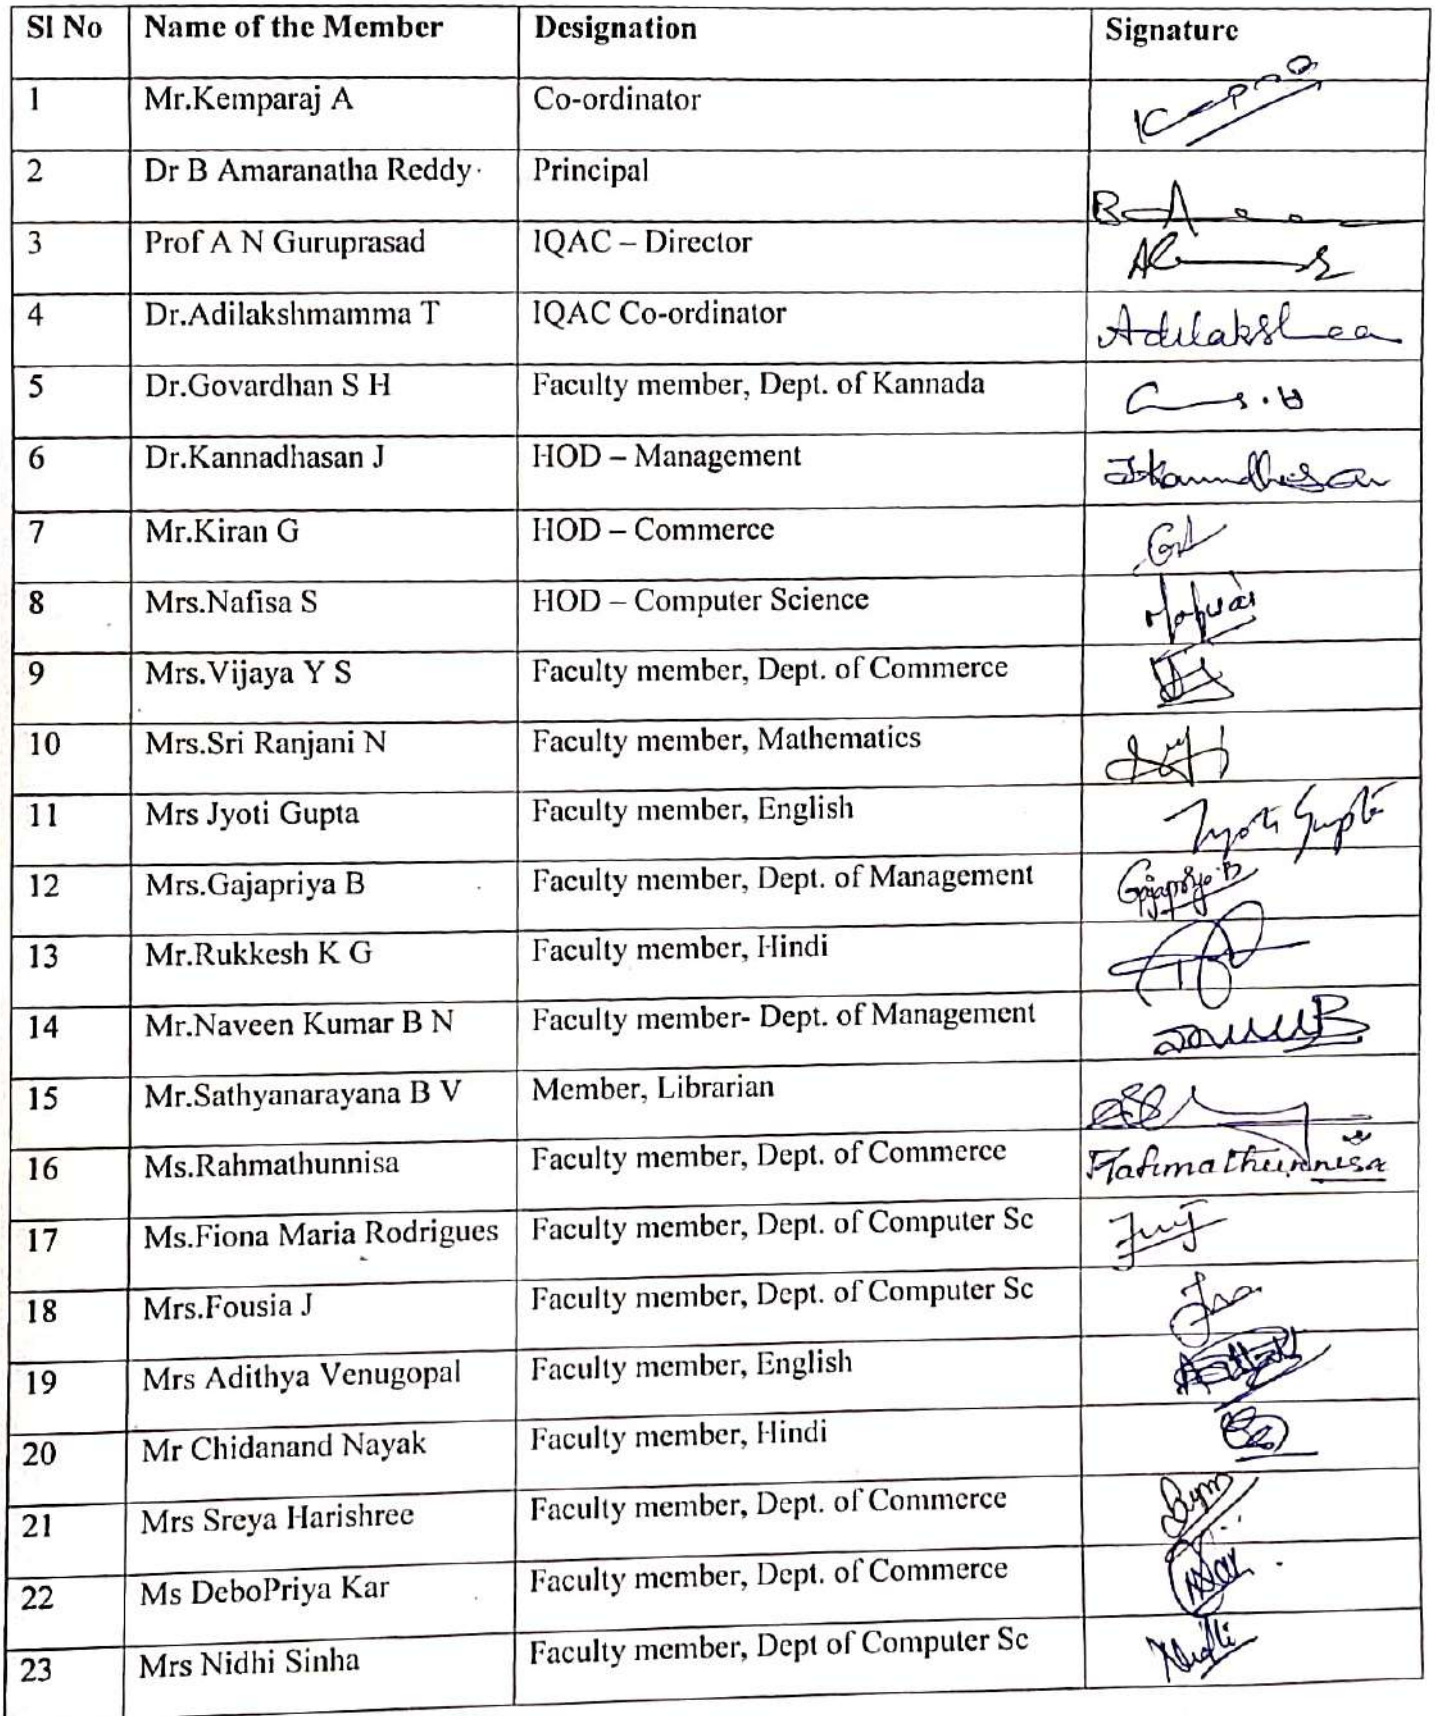 Sl No Name of the Member Designation Signature
1 Mr.Kemparaj A Co-ordinator
2 Dr B Amaranatha Reddy Principal
3 Prof A N Guruprasad IQAC – Director
4 Dr.Adilakshmamma T IQAC Co-ordinator
5 Dr.Govardhan S H Faculty member, Dept. of Kannada
6 Dr.Kannadhasan J HOD – Management
7 Mr.Kiran G HOD – Commerce
8 Mrs.Nafisa S HOD – Computer Science
9 Mrs.Vijaya Y S Faculty member, Dept. of Commerce
10 Mrs.Sri Ranjani N Faculty member, Mathematics
11 Mrs Jyoti Gupta Faculty member, English Jyoti Gupta
12 Mrs.Gajapriya B Faculty member, Dept. of Management Gajapriya.B
13 Mr.Rukkesh K G Faculty member, Hindi
14 Mr.Naveen Kumar B N Faculty member- Dept. of Management
15 Mr.Sathyanarayana B V Member, Librarian
16 Ms.Rahmathunnisa Faculty member, Dept. of Commerce
17 Ms.Fiona Maria Rodrigues Faculty member, Dept. of Computer Sc
18 Mrs.Fousia J Faculty member, Dept. of Computer Sc
19 Mrs Adithya Venugopal Faculty member, English
20 Mr Chidanand Nayak Faculty member, Hindi
21 Mrs Sreya Harishree Faculty member, Dept. of Commerce
22 Ms DeboPriya Kar Faculty member, Dept. of Commerce
23 Mrs Nidhi Sinha Faculty member, Dept of Computer Sc Nidhi